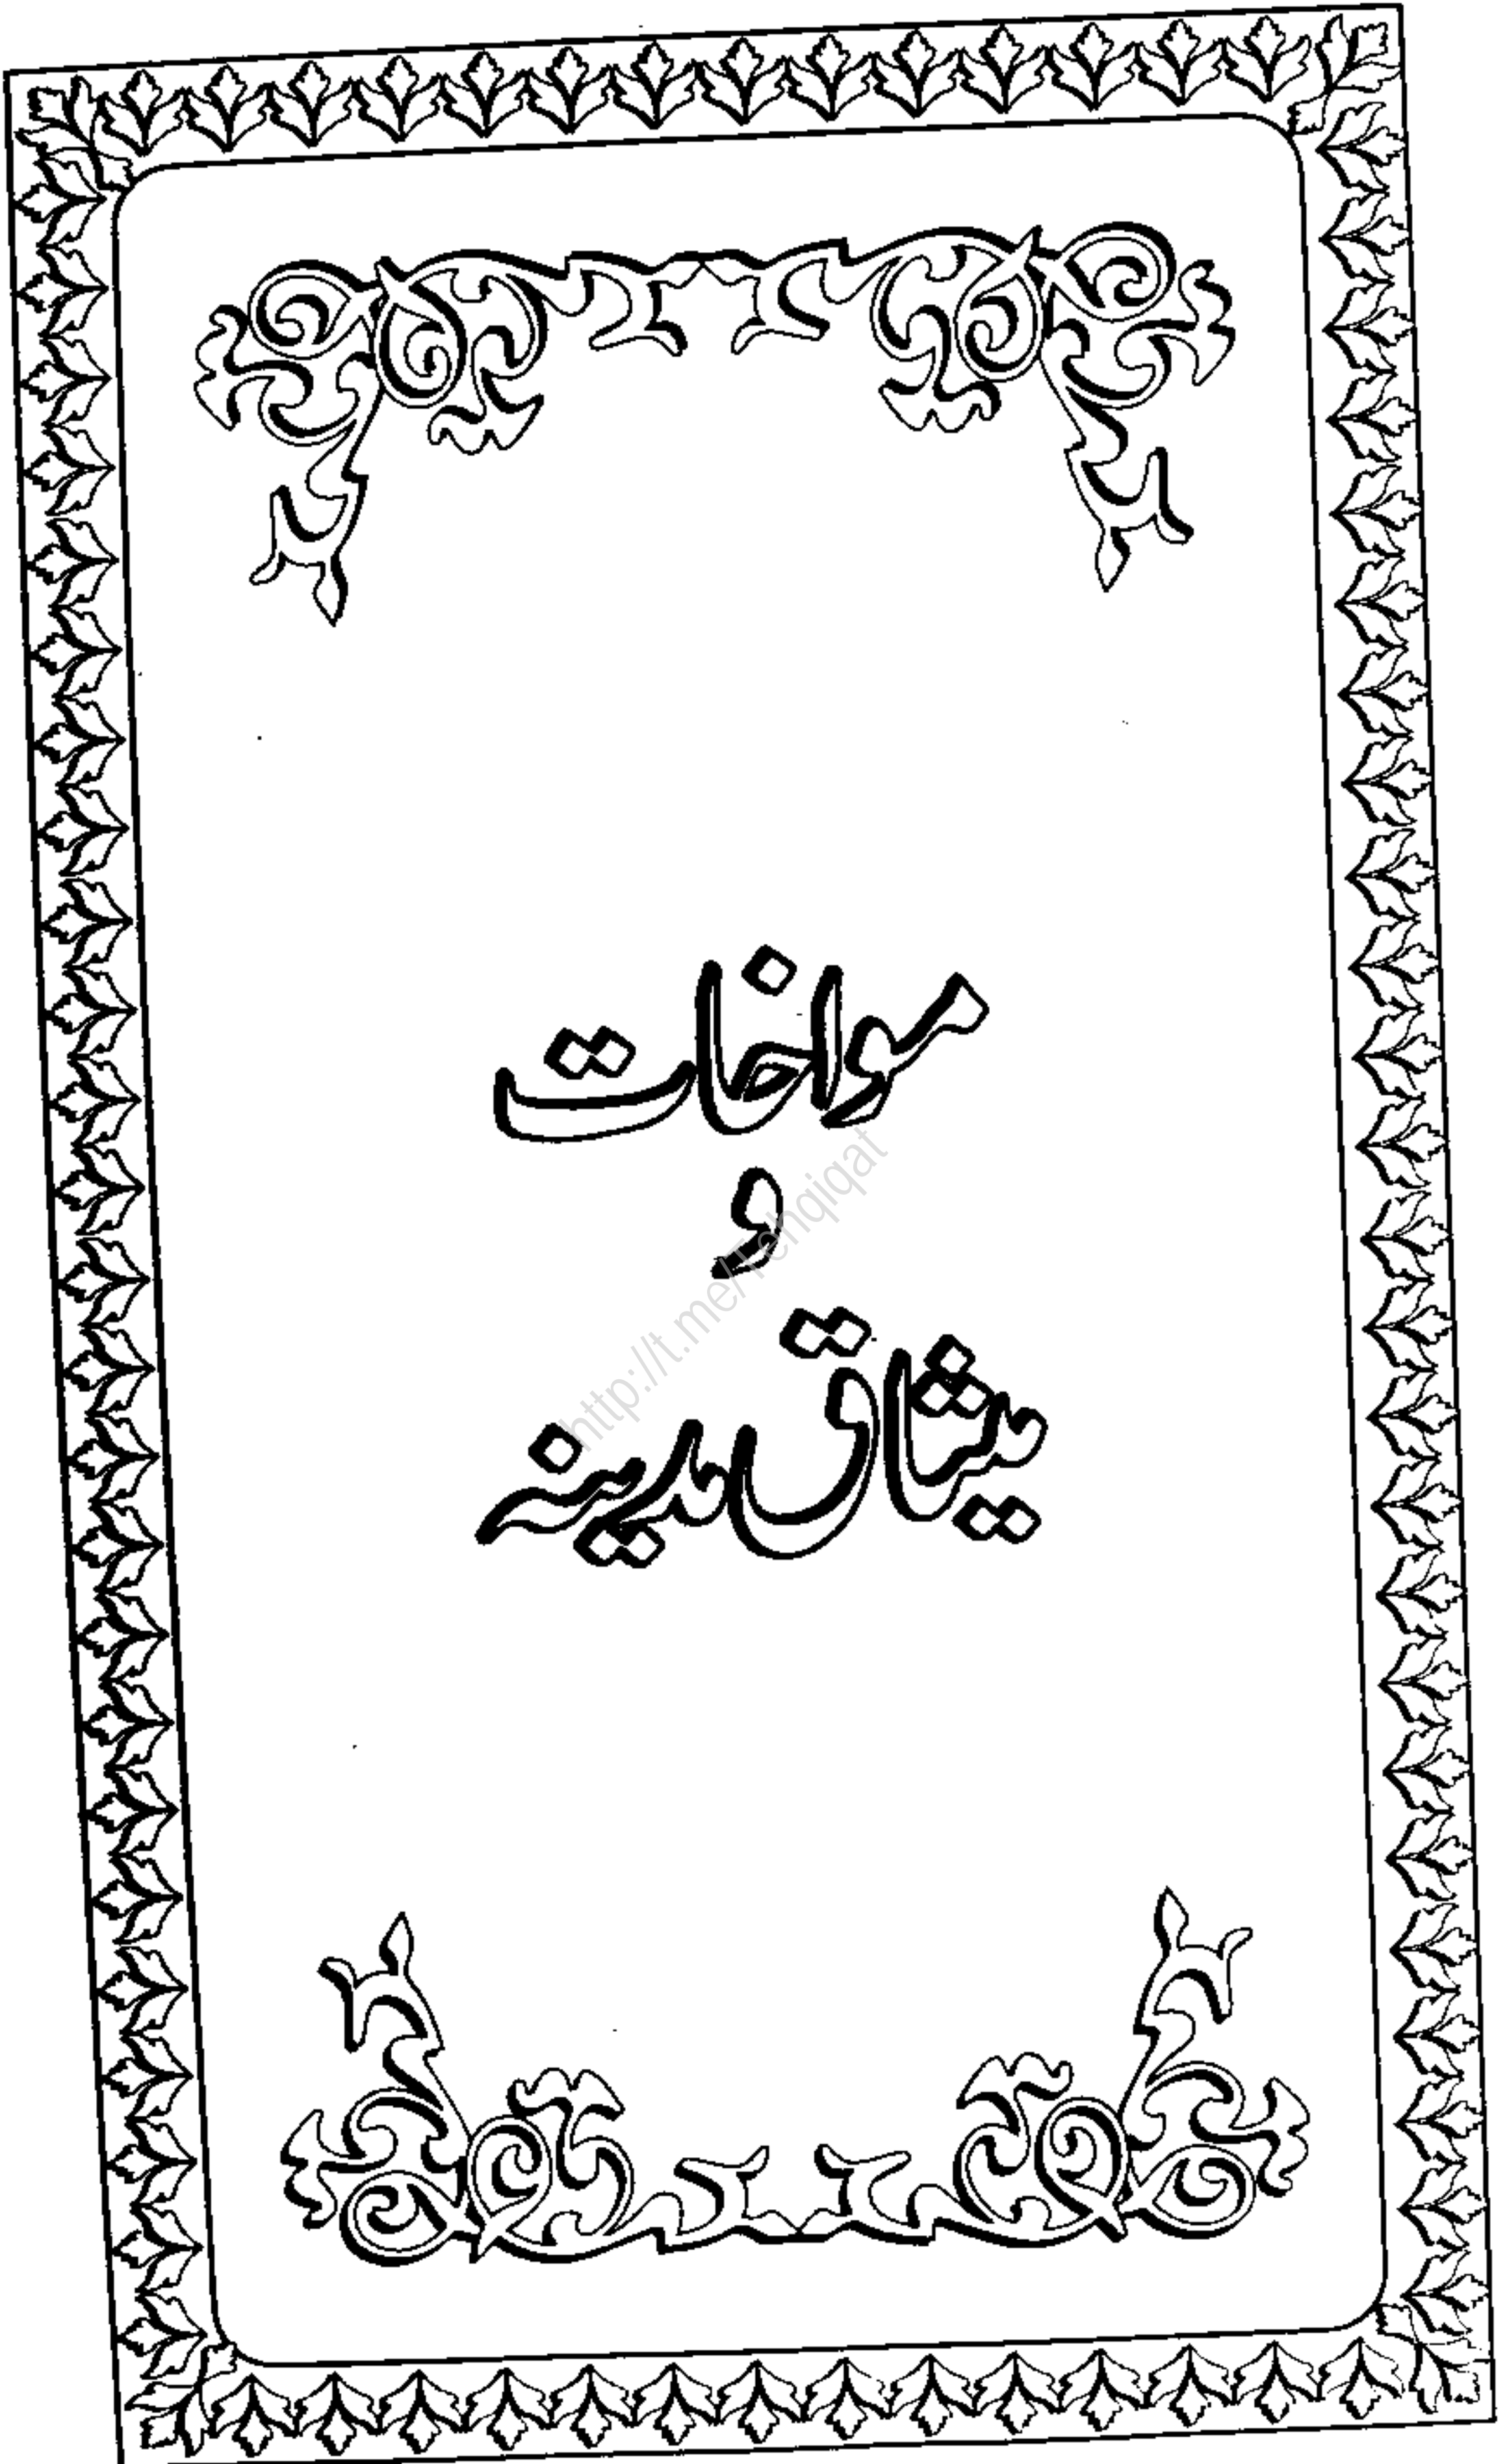 مواخات
و
میثاق مدینہ
http://t.me/Tehqiqat